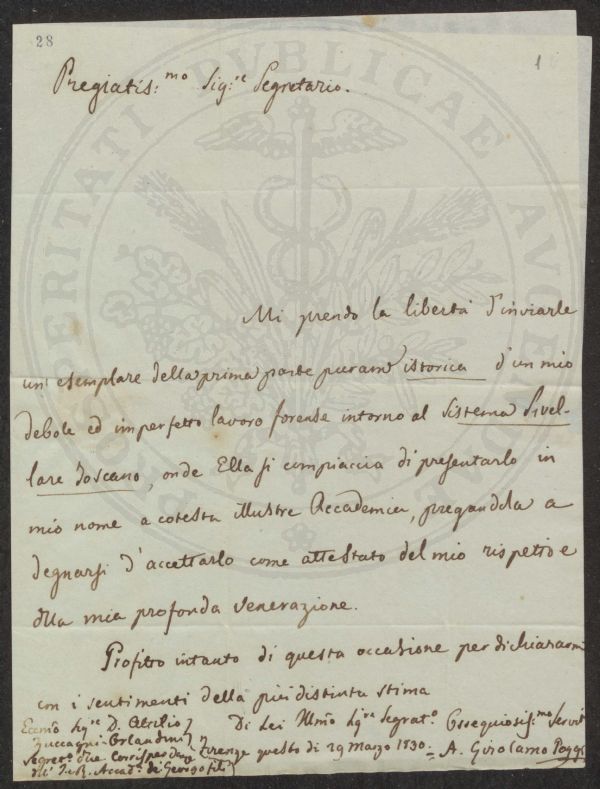 28
1
Pregiatis:mo Sig:re Segretario.
Mi prendo la libertà d'inviarle
un' esemplare della prima parte puram istorica d'un mio
debole ed imperfetto lavoro forense intorno al Sistema Livel-
lare Toscano, onde Ella si compiaccia di presentarlo in
mio nome a cotesta illustre Accademia, pregandola a
degnarsi d'accettarlo come attestato del mio rispetto e
della mia profonda venerazione.
Profitto intanto di questa occasione per dichiararmi
con i sentimenti della più distinta stima
Di Lei Illmo Sigre Segreto Ossequiosis:mo Servit
Eccmo Sigre D. Attilio
Zuccagni-Orlandini
Segreto delle Corrispondenze
dell' I. e R. Accad.a de' Georgofili
Firenze questo dì 29 Marzo 1830.
A. Girolamo Poggi
PROSPERITATI PVBLICAE AVGENDAE